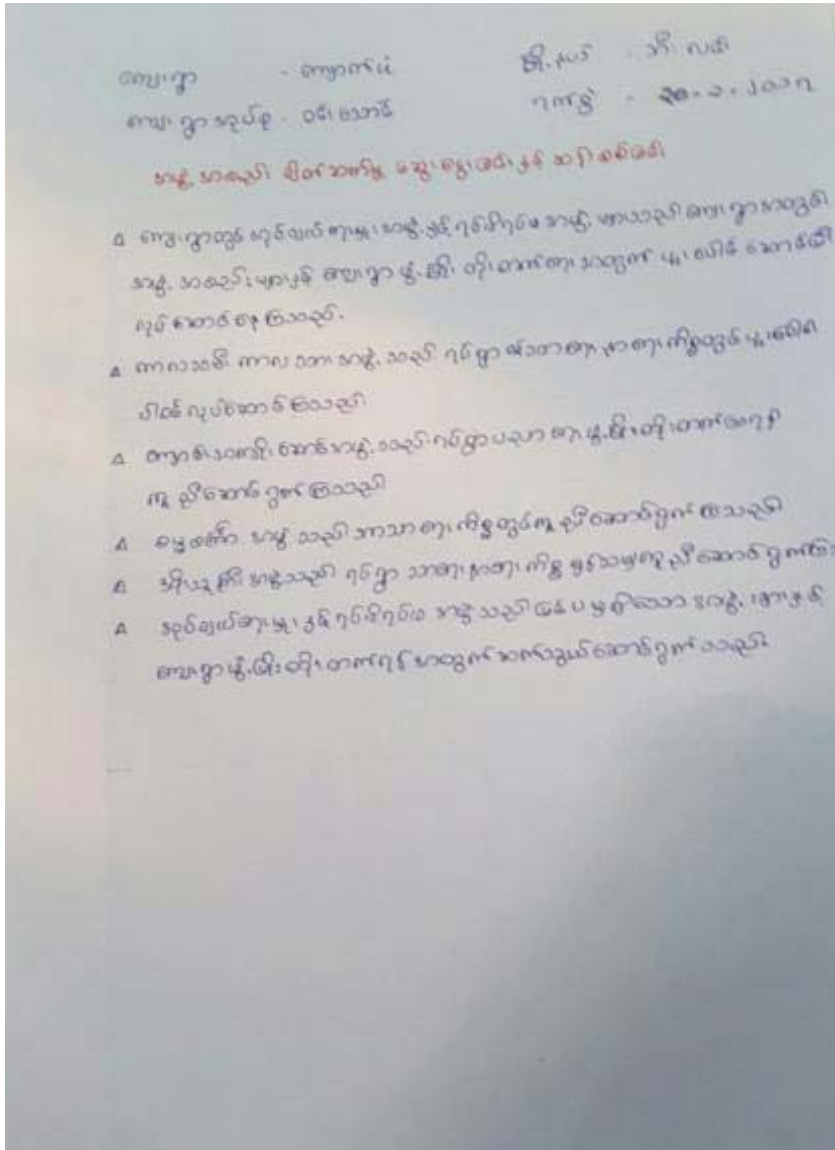 ကျေးရွာ - ကျောက်ပုံ မြို့နယ် - ဘီးလင်း
ကျေးရွာအုပ်စု - ဝင်းသောင် ရက်စွဲ - ၃၀.၁.၂၀၁၇
အဖွဲ့အစည်း ချိတ်ဆက်မှု ဆွေးနွေးခြင်းနှင့် ဆန်းစစ်ခြင်း
△ ကျေးရွာတွင် အုပ်ချုပ်ရေးမှူးအဖွဲ့နှင့် ရပ်မိရပ်ဖ အဖွဲ့များသည် ကျေးရွာအတွင်း
အဖွဲ့အစည်းများနှင့် ကျေးရွာ ဖွံ့ဖြိုး တိုးတက်ရေးအတွက် ပူးပေါင်း ဆောင်ရွက်
လုပ်ဆောင်နေကြသည်။
△ ကာလသမီး ကာလသားအဖွဲ့သည် ရပ်ရွာ သာရေးနာရေးကိစ္စတွင် ပူးပေါင်း
ပါဝင်လုပ်ဆောင်ကြသည်
△ ကျောင်းအကျိုးဆောင်အဖွဲ့သည် ရပ်ရွာပညာရေး ဖွံ့ဖြိုးတိုးတက်စေရန်
ကူညီဆောင်ရွက်ကြသည်
△ ဓမ္မစကြာ အဖွဲ့သည် ဘာသာရေးကိစ္စတွင်ကူညီဆောင်ရွက်ကြသည်။
△ အဖွဲ့သည် ရပ်ရွာ သာရေးနာရေးကိစ္စ မှန်သမျှကူညီဆောင်ရွက်
△ အုပ်ချုပ်ရေးမှူးနှင့်ရပ်မိရပ်ဖ အဖွဲ့သည် ပြင်ပမှရှိသော အဖွဲ့များနှင့်
ကျေးရွာဖွံ့ဖြိုးတိုးတက်ရန်အတွက်ဆက်သွယ်ဆောင်ရွက်သည်။